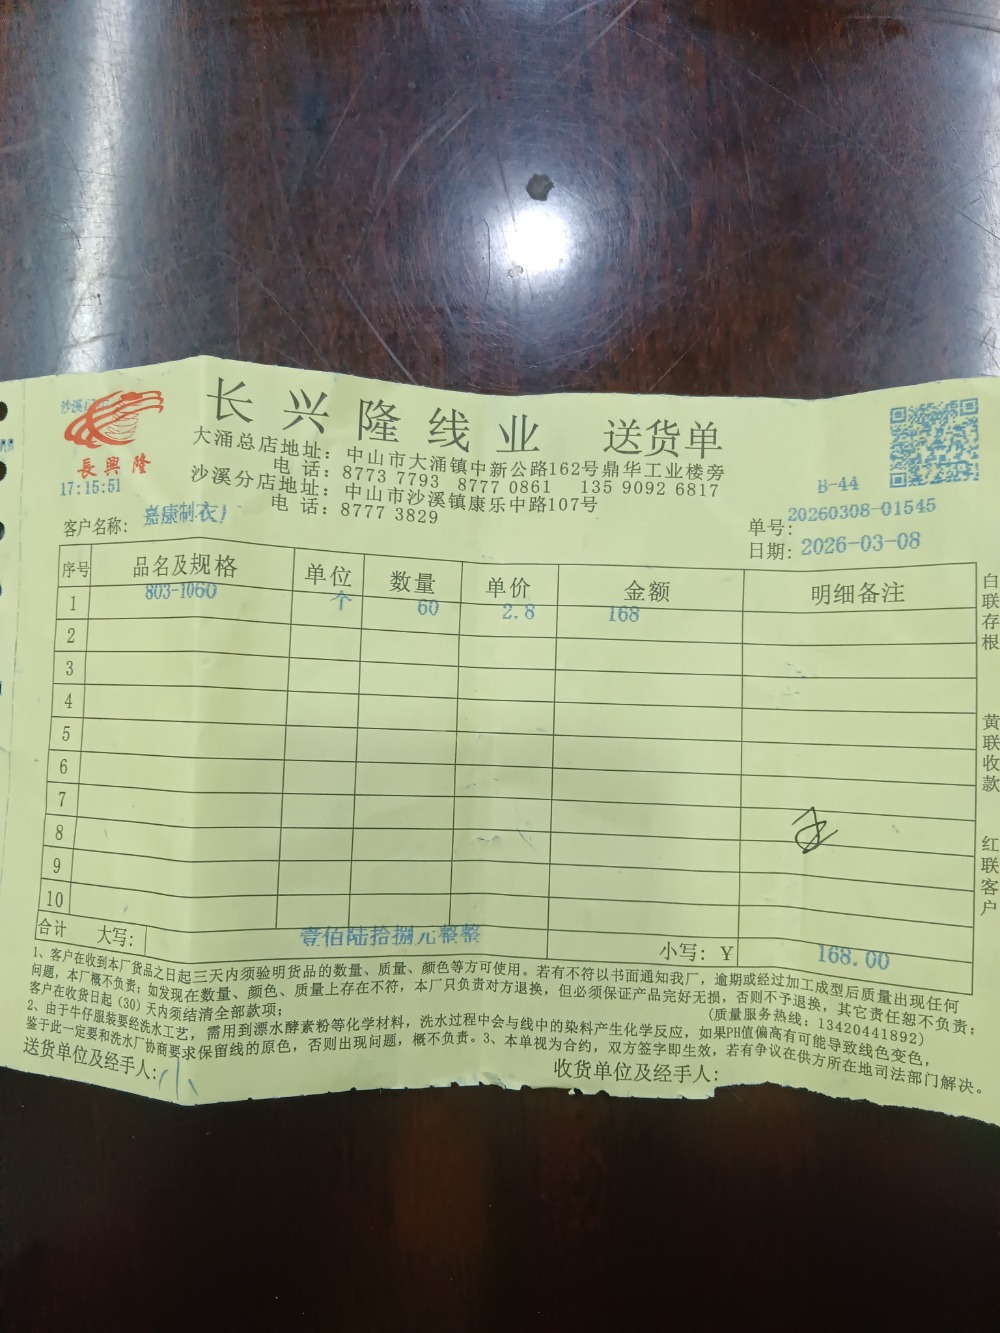 长兴隆线业 送货单
長興隆
大涌总店地址：中山市大涌镇中新公路162号鼎华工业楼旁
电 话：8773 7793 8777 0861 135 9092 6817
沙溪分店地址：中山市沙溪镇康乐中路107号
电 话：8777 3829
17:15:51
B-44
客户名称：嘉康制衣厂
单号：20260308-01545
日期：2026-03-08
序号 品名及规格 单位 数量 单价 金额 明细备注
1 803-1060 个 60 2.8 168
2
3
4
5
6
7
8
9
10
合计 大写：壹佰陆拾捌元整整 小写：Y 168.00
1、客户在收到本厂货品之日起三天内须验明货品的数量、质量、颜色等方可使用。若有不符以书面通知我厂，逾期或经过加工成型后质量出现任何
问题，本厂概不负责；如发现在数量、颜色、质量上存在不符，本厂只负责对方退换，但必须保证产品完好无损，否则不予退换，其它责任恕不负责；
客户在收货日起（30）天内须结清全部款项； （质量服务热线：13420441892）
2、由于牛仔服装要经洗水工艺，需用到漂水酵素粉等化学材料，洗水过程中会与线中的染料产生化学反应，如果PH值偏高有可能导致线色变色，
鉴于此一定要和洗水厂协商要求保留线的原色，否则出现问题，概不负责。3、本单视为合约，双方签字即生效，若有争议在供方所在地司法部门解决。
送货单位及经手人： 收货单位及经手人：
白联存根
黄联收款
红联客户